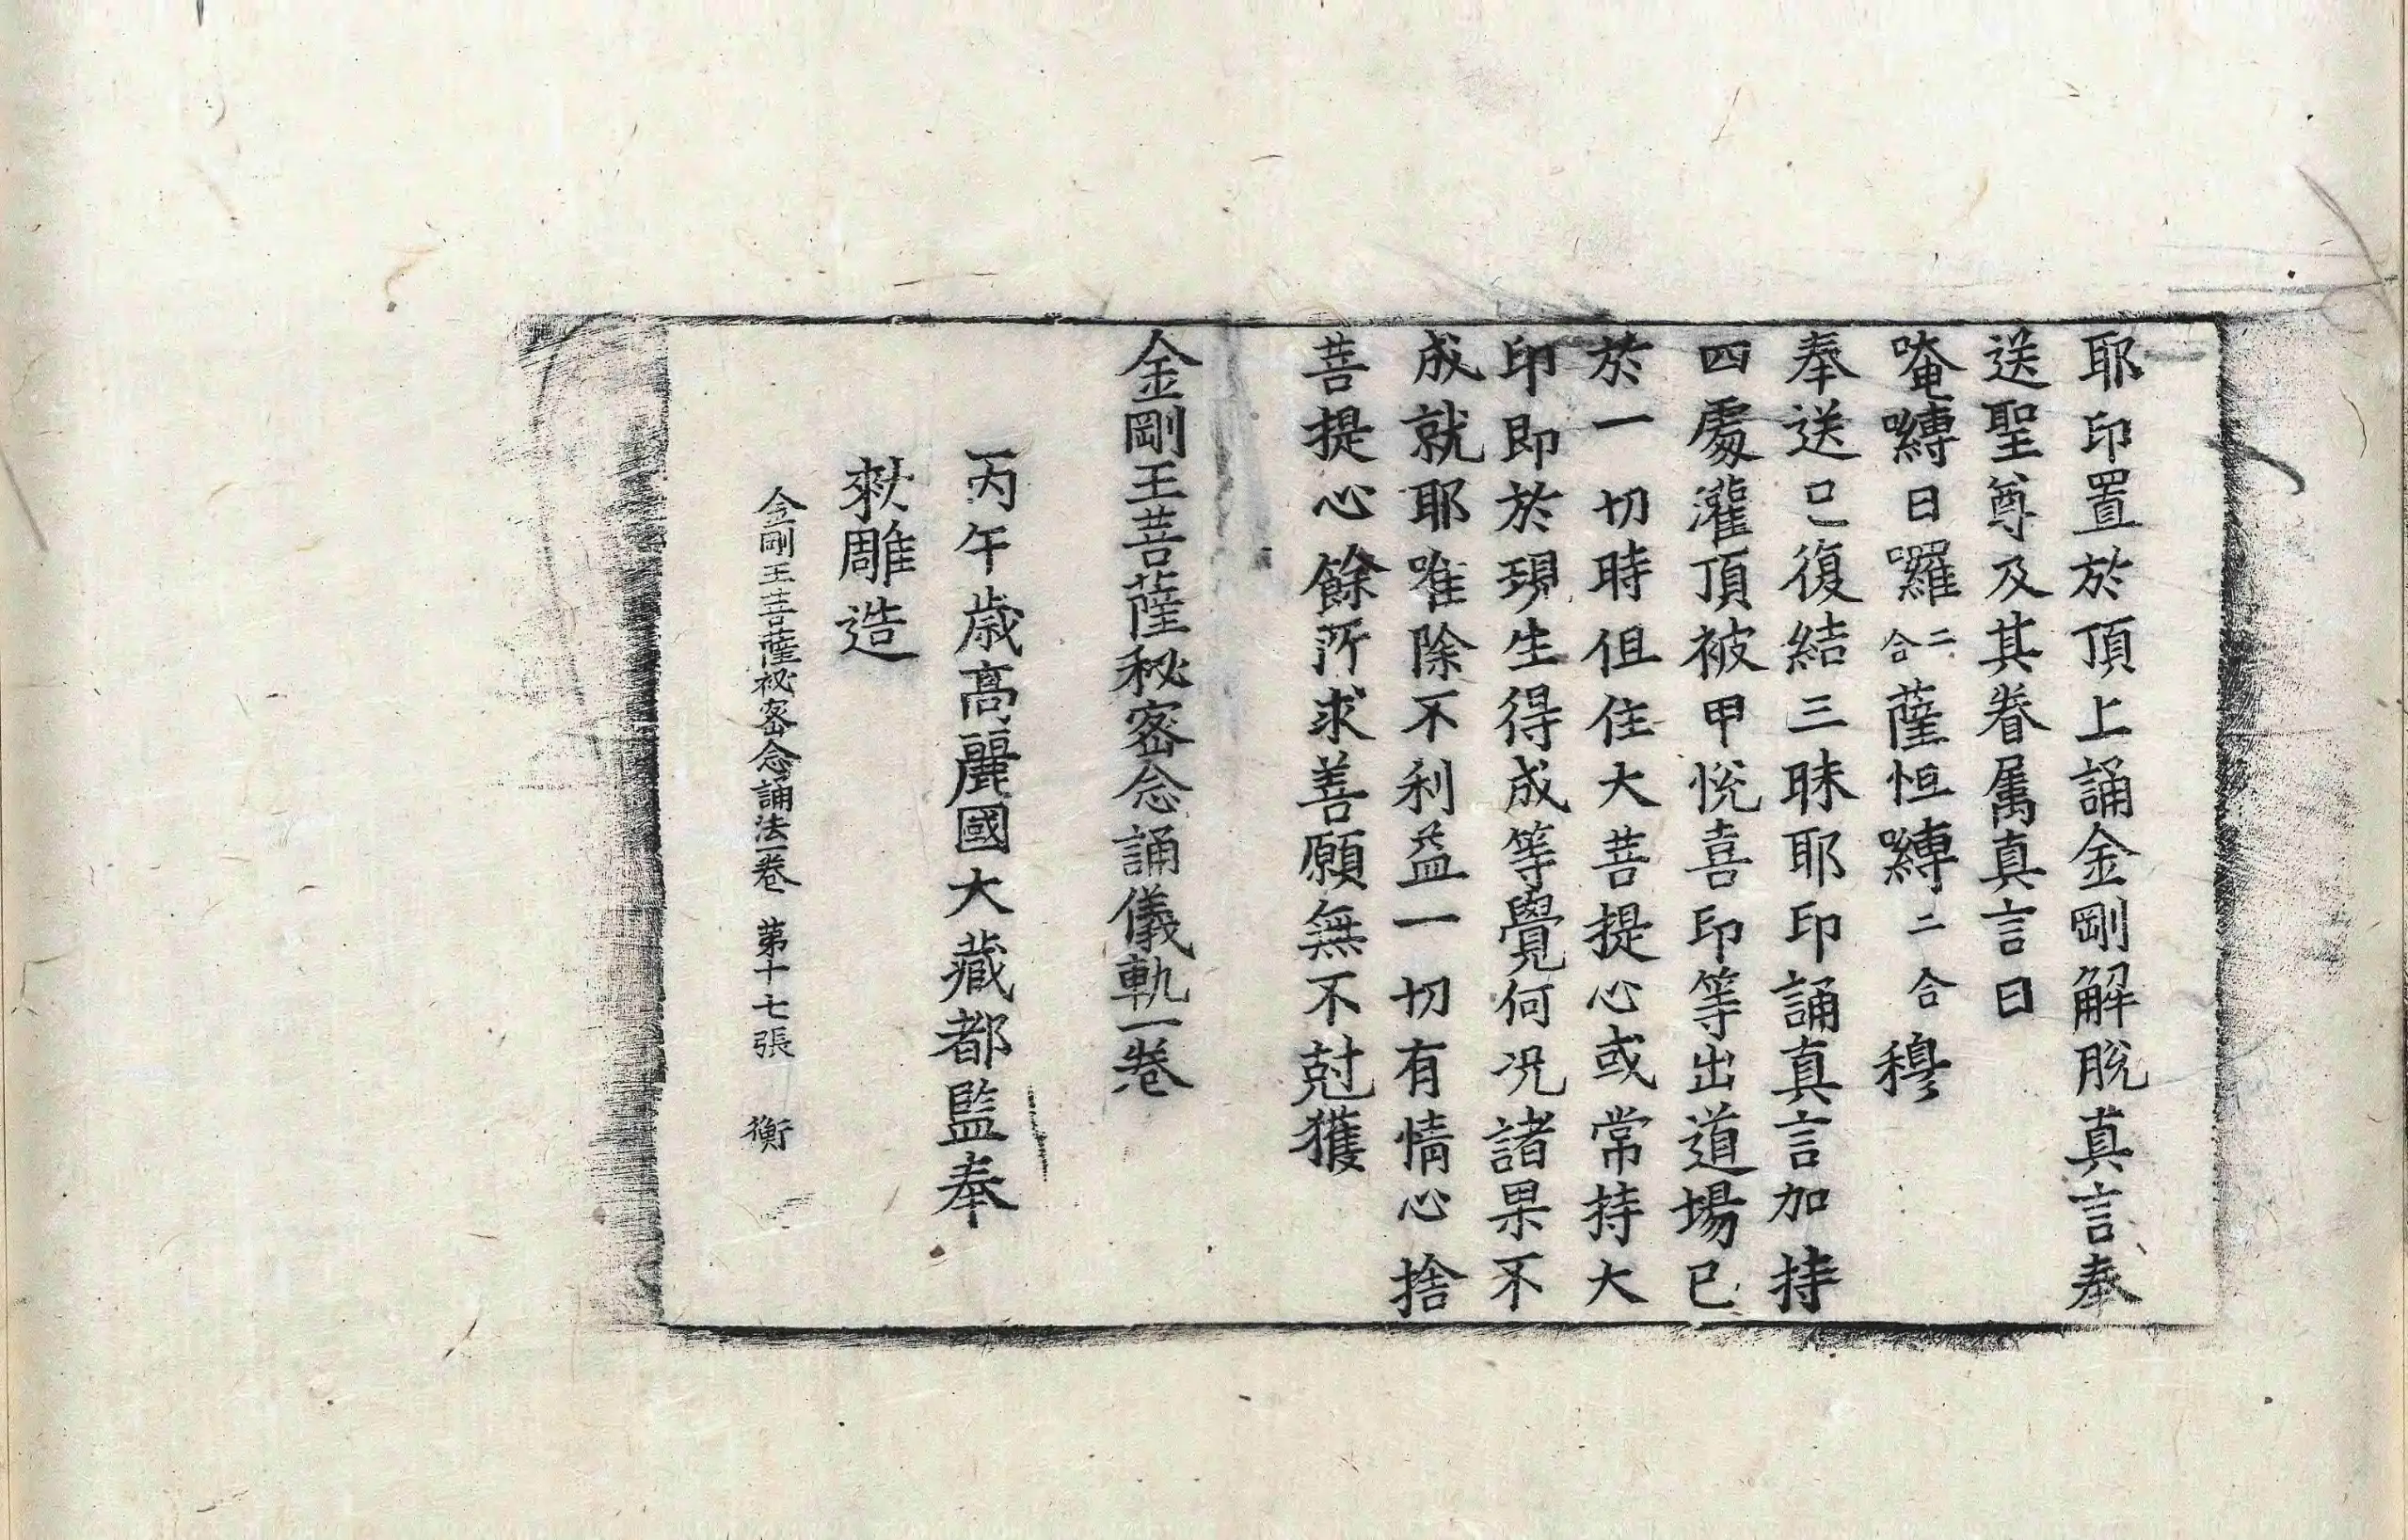 耶印置於頂上誦金剛解脫真言奉
送聖尊及其眷属真言曰
唵嚩日囉二合薩怛嚩二合穆
奉送已復結三昧耶印誦真言加持
四處灌頂被甲悅喜印等出道場已
於一切時但住大菩提心或常持大
印即於現生得成等覺何况諸果不
成就耶唯除不利益一切有情心捨
菩提心餘所求善願無不尅獲
金剛王菩薩秘密念誦儀軌一卷
丙午歲高麗國大藏都監奉
勑雕造
金剛王菩薩秘密念誦法一卷 第十七張 衡